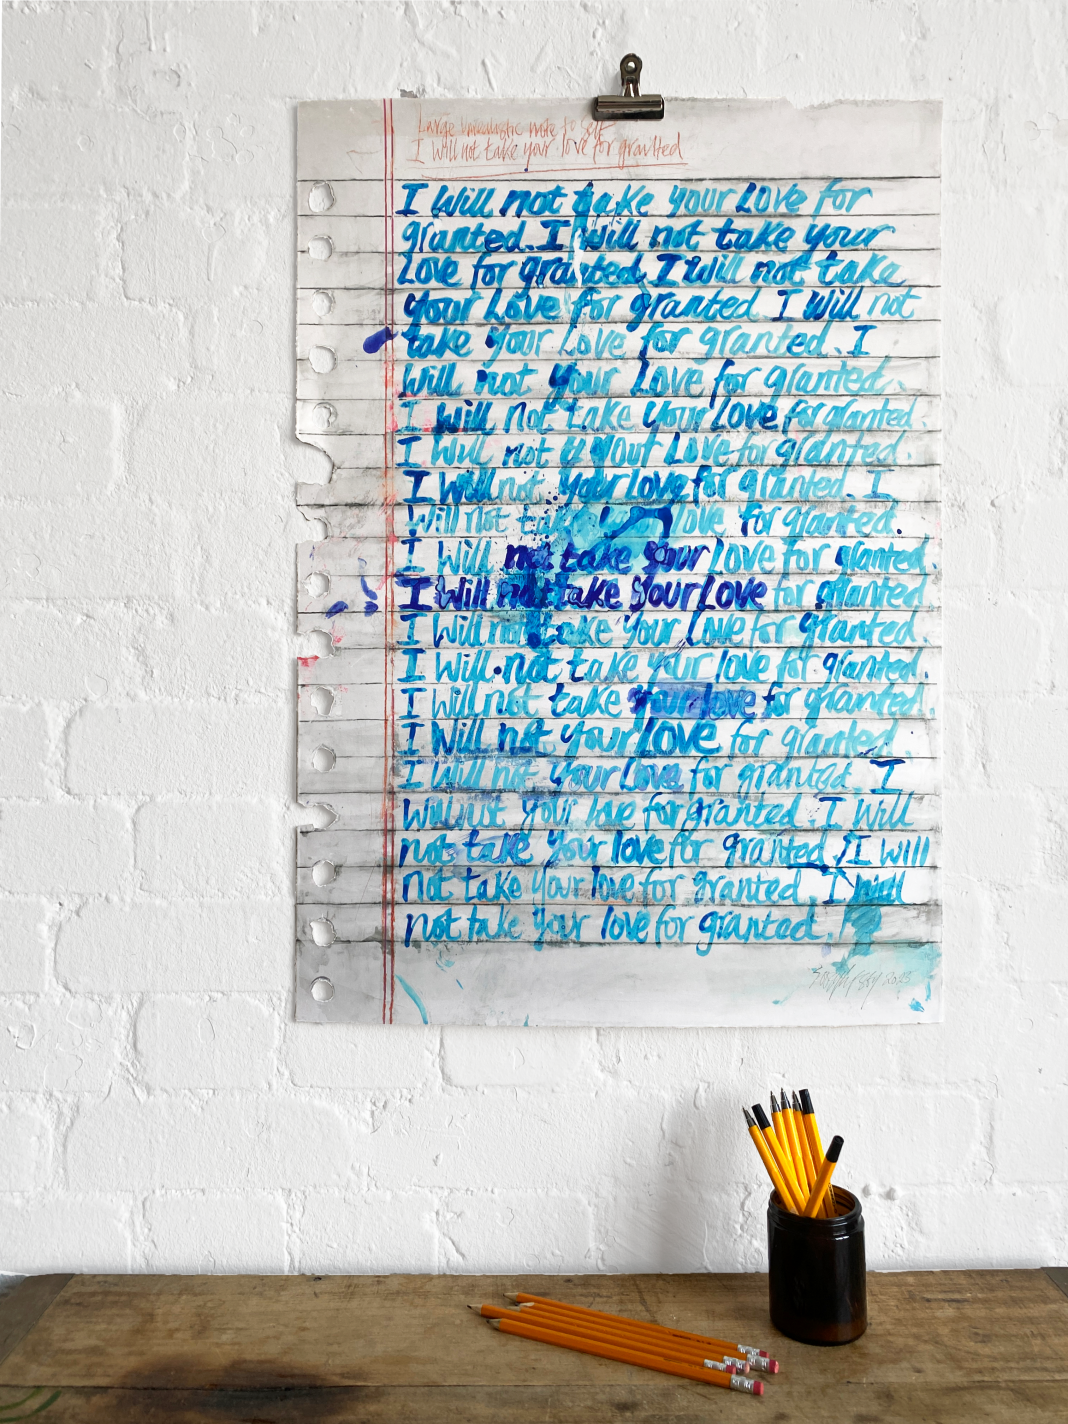 Large unrealistic note to self
I will not take your love for granted
I will not take your Love for
granted. I will not take your
Love for granted. I will not take
your Love for granted. I will not
take your Love for granted. I
will not your Love for granted.
I will not take your Love for granted.
I will not your Love for granted.
I will not your Love for granted. I
will not take your love for granted.
I will not take your Love for granted.
I will not take your Love for granted
I will not take your Love for granted.
I will not take your love for granted.
I will not take your love for granted.
I will not your Love for granted.
I will not your Love for granted. I
will your love for granted. I will
not take your love for granted. I will
not take your love for granted. I will
not take your love for granted.
2023